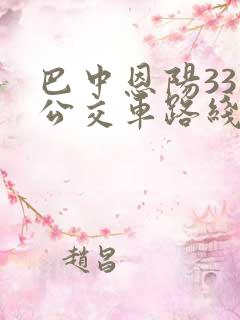 巴中恩陽33
公交車路綫
趙昌